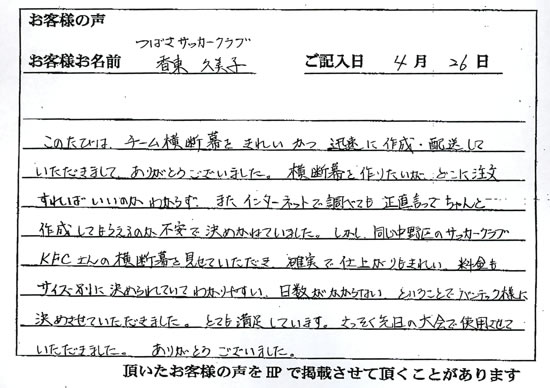 お客様の声
つばさサッカークラブ
お客様お名前 香東 久美子 ご記入日 4月 26日
このたびは、チーム横断幕を きれい かつ 迅速に作成・配送して
いただきまして、ありがとうございました。横断幕を作りたいが、どこに注文
すればいいのかわからず、また インターネットで調べても 正直言ってちゃんと
作成してもらえるのか不安で決めかねていました。しかし、同じ中野区のサッカークラブ
KFCさんの横断幕を見せていただき、確実で仕上がりもきれい、料金も
サイズ別に決められていてわかりやすい、日数がかからない、ということでバンテック様に
決めさせていただきました。とても満足しています。さっそく先日の大会で使用させて
いただきました。 ありがとうございました。
頂いたお客様の声をHPで掲載させて頂くことがあります